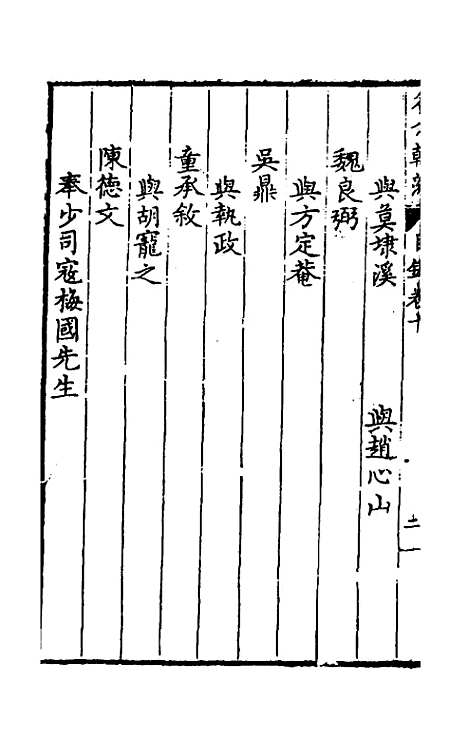 與莫埭溪　與趙心山
魏良弼
與方定菴
吳鼎
與執政
童承敘
與胡寵之
陳德文
奉少司寇梅國先生